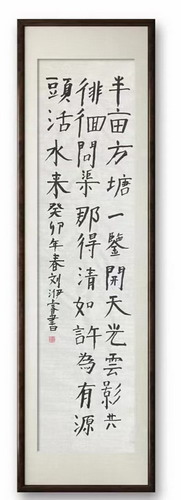 半亩方塘一鑒開天光雲影共
徘徊問渠那得清如許為有源
頭活水来癸卯年春刘